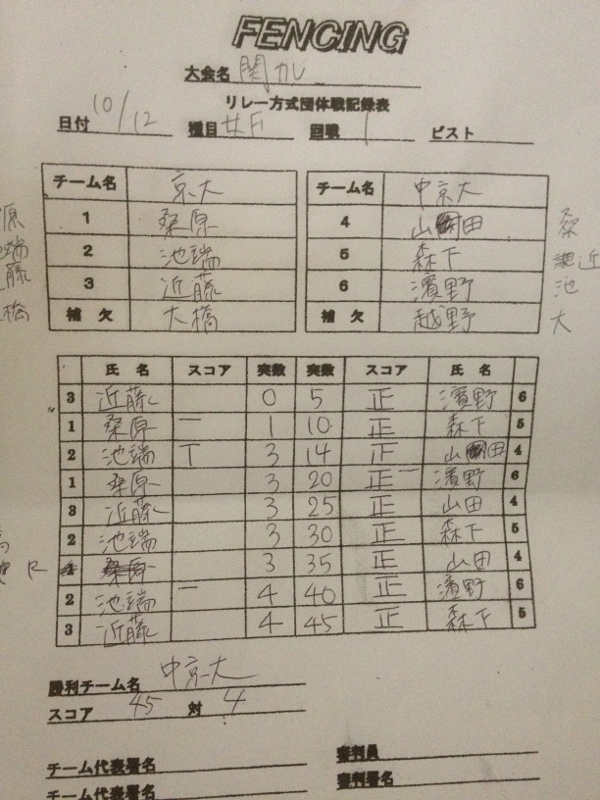 FENCING
大会名 関カレ
リレー方式団体戦記録表
日付 10/12 種目 女F 回戦 1 ピスト
チーム名 京大 チーム名 中京大
1 桑原 4 山田
2 池端 5 森下
3 近藤 6 濱野
補欠 大橋 補欠 越野
原
端
藤
橋
桑
近
池
大
氏名 スコア 実数 実数 スコア 氏名
3 近藤 0 5 正 濱野 6
1 桑原 一 1 10 正 森下 5
2 池端 T 3 14 正 山田 4
1 桑原 3 20 正一 濱野 6
3 近藤 3 25 正 山田 4
2 池端 3 30 正 森下 5
R 桑原 3 35 正 山田 4
2 池端 一 4 40 正 濱野 6
3 近藤 4 45 正 森下 5
勝利チーム名 中京大
スコア 45 対 4
チーム代表署名 審判員
チーム代表署名 審判署名